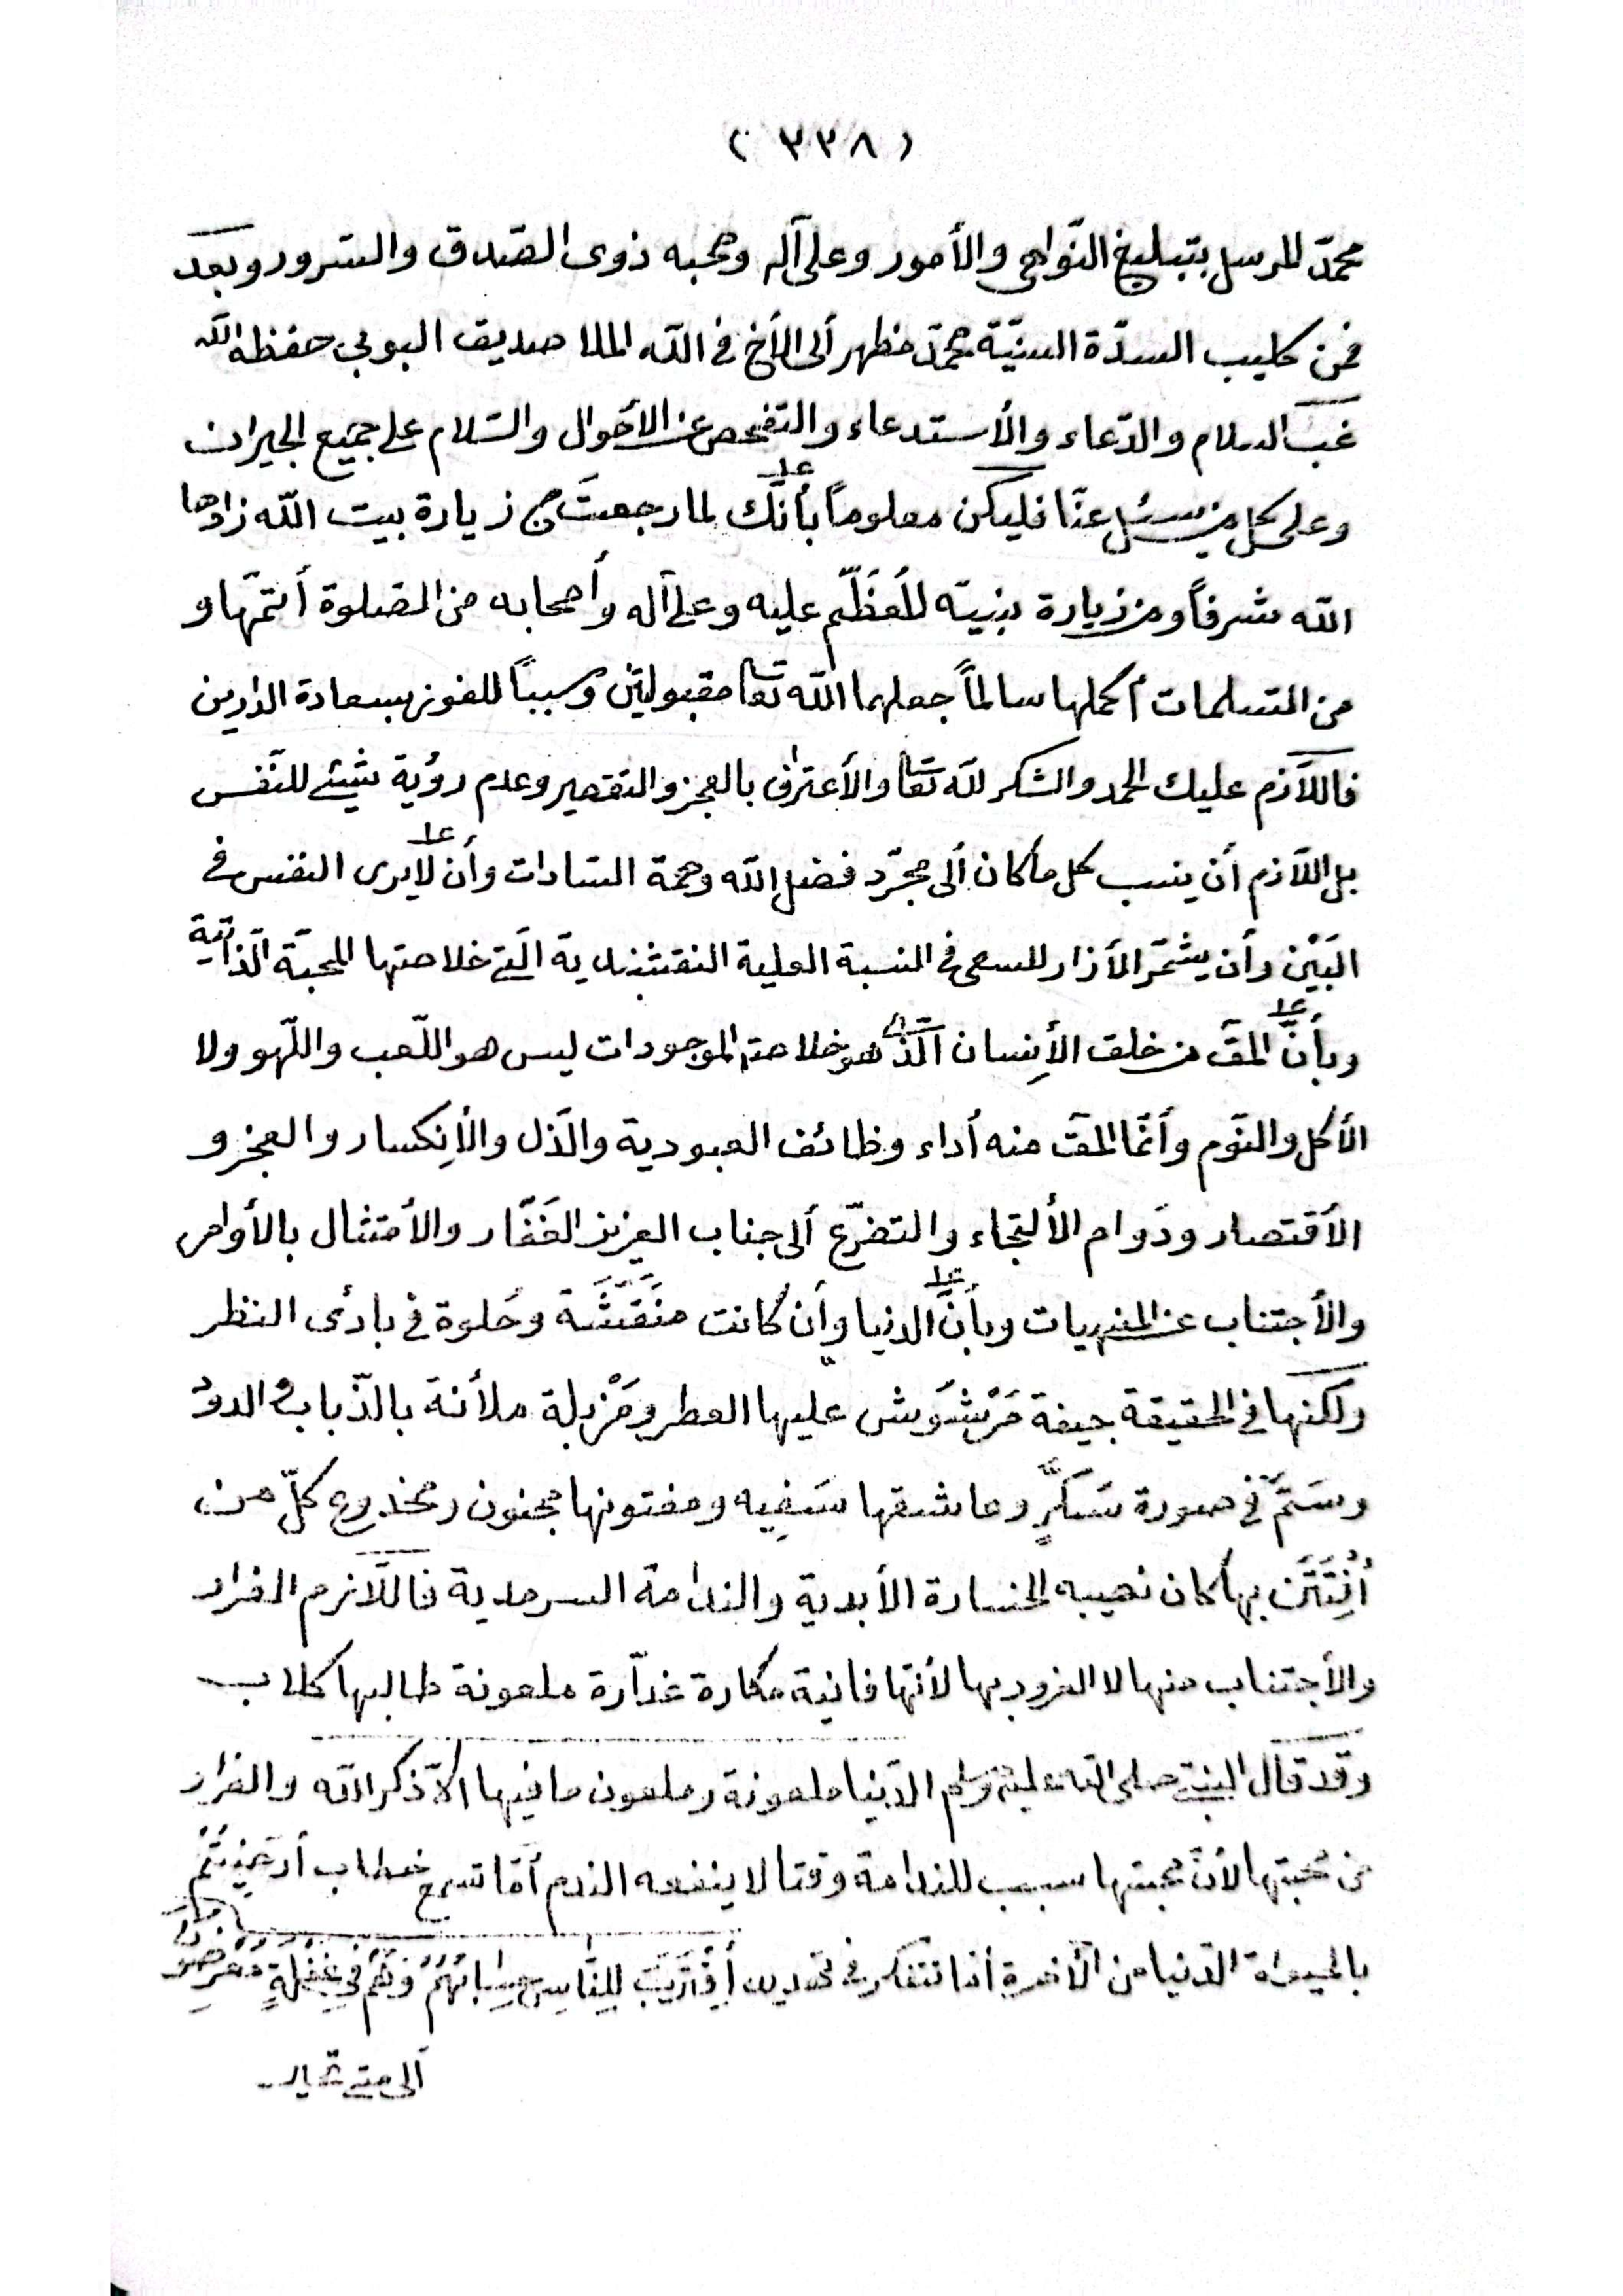 ( ٣٣٨ )
محمّد المرسل بتبليغ النّواهى والأمور وعلى آله وصحبه ذوى الصّدق والسّرور وبعد
فمن كليب السدّة السنيّة محمّد مظهر ألى الأخ فى الله الملا صديق البوبى حفظه الله
غبّ السلام والدّعاء والأستدعاء والتفحص عن الأحوال والسّلام على جميع الجيران
وعلى كل من يسئل عنّا فليكن معلوماً بأنّك لما رجعتَ من زيارة بيت الله زادها
الله شرفاً ومن زيارة بنيّه المُعَظّم عليه وعلى آله وأصحابه من الصلوة أتمّها و
من التسلمات أكملها سالماً جعلهما الله تعا مقبولتين وسبباً للفوز بسعادة الدّارين
فاللّازم عليك الحمد والشكر لله تعا والأعتراف بالعجز والتقصير وعدم رؤية شيئ للنّفس
بل اللّازم أن ينسب كل ما كان ألى مجرّد فضل الله وهمة السّادات وأن لا يرى النفس فى
البَيْن وأن يشمّر الأزار للسعى فى النسبة العلية النقشبندية الّتى خلاصتها المحبّة الذّاتية
وبأنّ المقّ من خلق الأِنسان الّذى هو خلاصة الموجودات ليس هو اللّعب واللّهو ولا
الأكل والنّوم وأنّما المقّ منه أداء وظائف العبودية والذّل والأِنكسار والعجز و
الأقتصار ودَوام الألتجاء والتضرّع ألى جناب العزيز الغَفّار والأمتثال بالأوامر
والأجتناب عن المنهيات وبأنَّ الدنيا وأن كانت منَقَّشَة وحُلوة فى بادئ النظر
ولكنها فى الحقيقة جيفة مَرْشوَش عليها العطر ومَزْبلة ملأنة بالذّباب والدود
وسَمّ فى صورة سَكَّرٍ وعاشقها سَفِيه ومفتونها مجنون ومخدوع كلّ من
أُفْتِتَن بها كان نصيبه الخسارة الأبدية والندامة السرمدية فاللّازم الفرار
والأجتناب منها لا الغرور بها لأنّها فانية مكارة غدّارة ملعونة طالبها كلاب
وقد قال النبيّ صلى الله عليه وسلم الدّنيا ملعونة وملعون ما فيها الّا ذكر الله والفرار
من محبتها لأنّ محبتها سبب للندامة وقتا لا ينفعه الندم أمّا تسمع خطاب أرَضِيتُمْ
بالحيوة الدّنيا من الآخرة أما تتفكر فى تهديد أِقْتَرَبَ لِلنَّاسِ حِسَابُهُمْ وَهُمْ فِى غَفْلَةٍ مُعْرِضُونَ
ألى متى